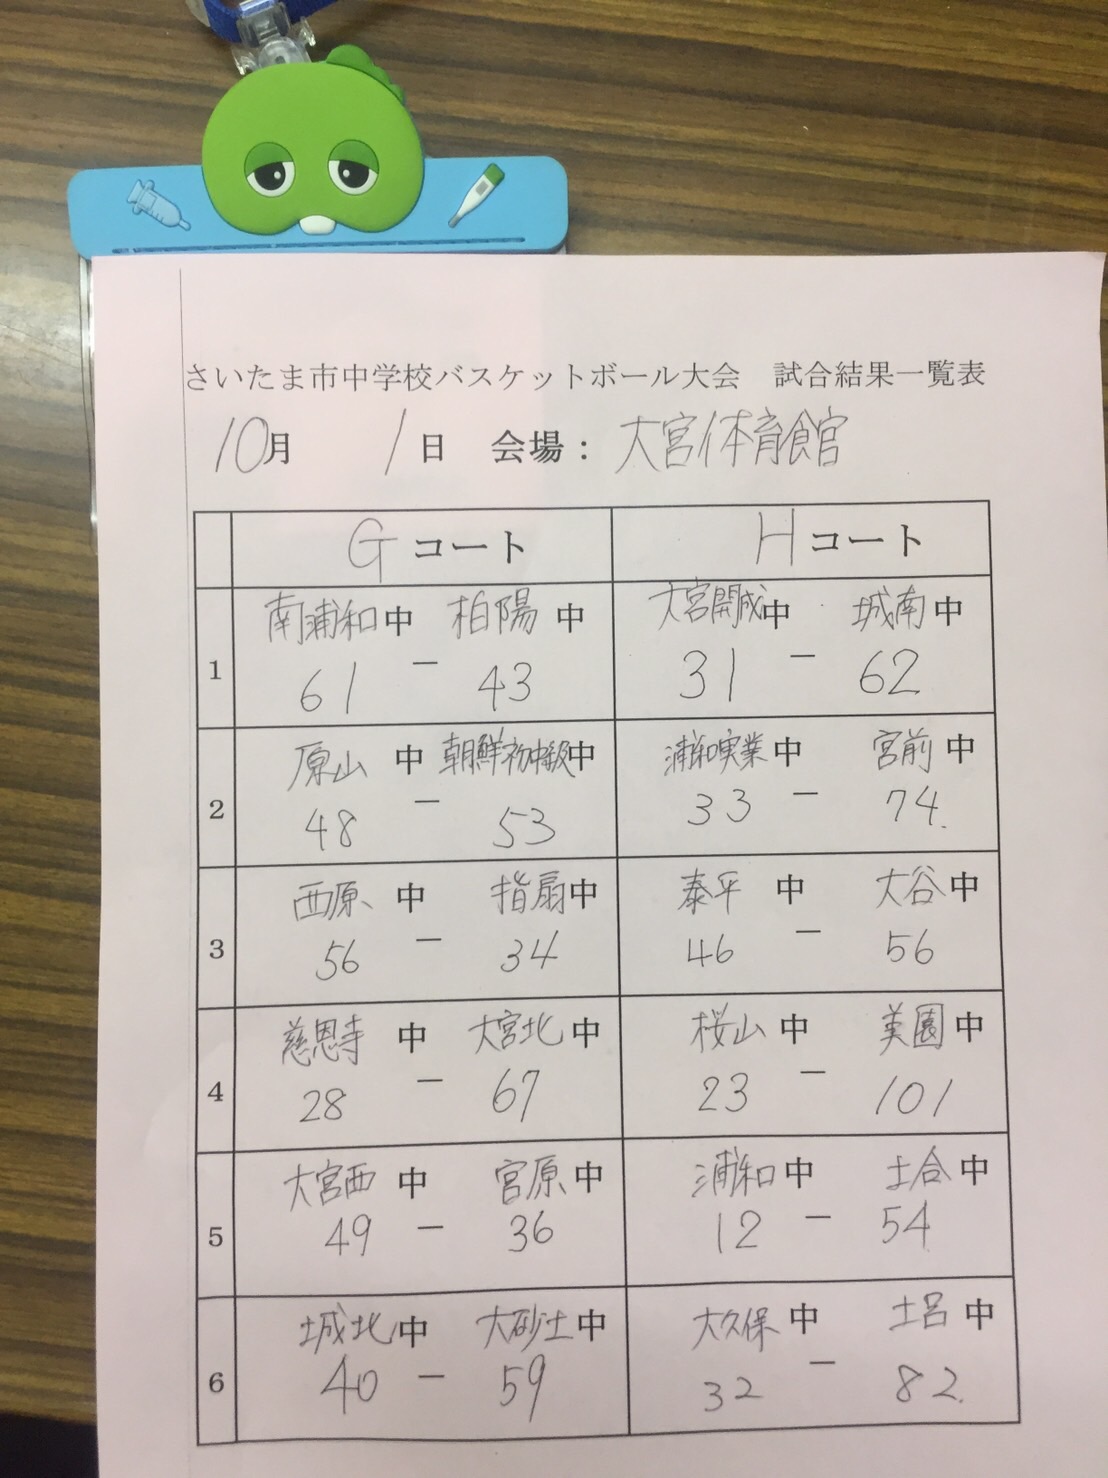 さいたま市中学校バスケットボール大会　試合結果一覧表
10月　1日　会場：大宮体育館
Gコート　Hコート
南浦和中　柏陽中　大宮開成中　城南中
1　61 － 43　31 － 62
原山中　朝鮮初中級中　浦和実業中　宮前中
2　48 － 53　33 － 74
西原中　指扇中　泰平中　大谷中
3　56 － 34　46 － 56
慈恩寺中　大宮北中　桜山中　美園中
4　28 － 67　23 － 101
大宮西中　宮原中　浦和中　土合中
5　49 － 36　12 － 54
城北中　大砂土中　大久保中　土呂中
6　40 － 59　32 － 82